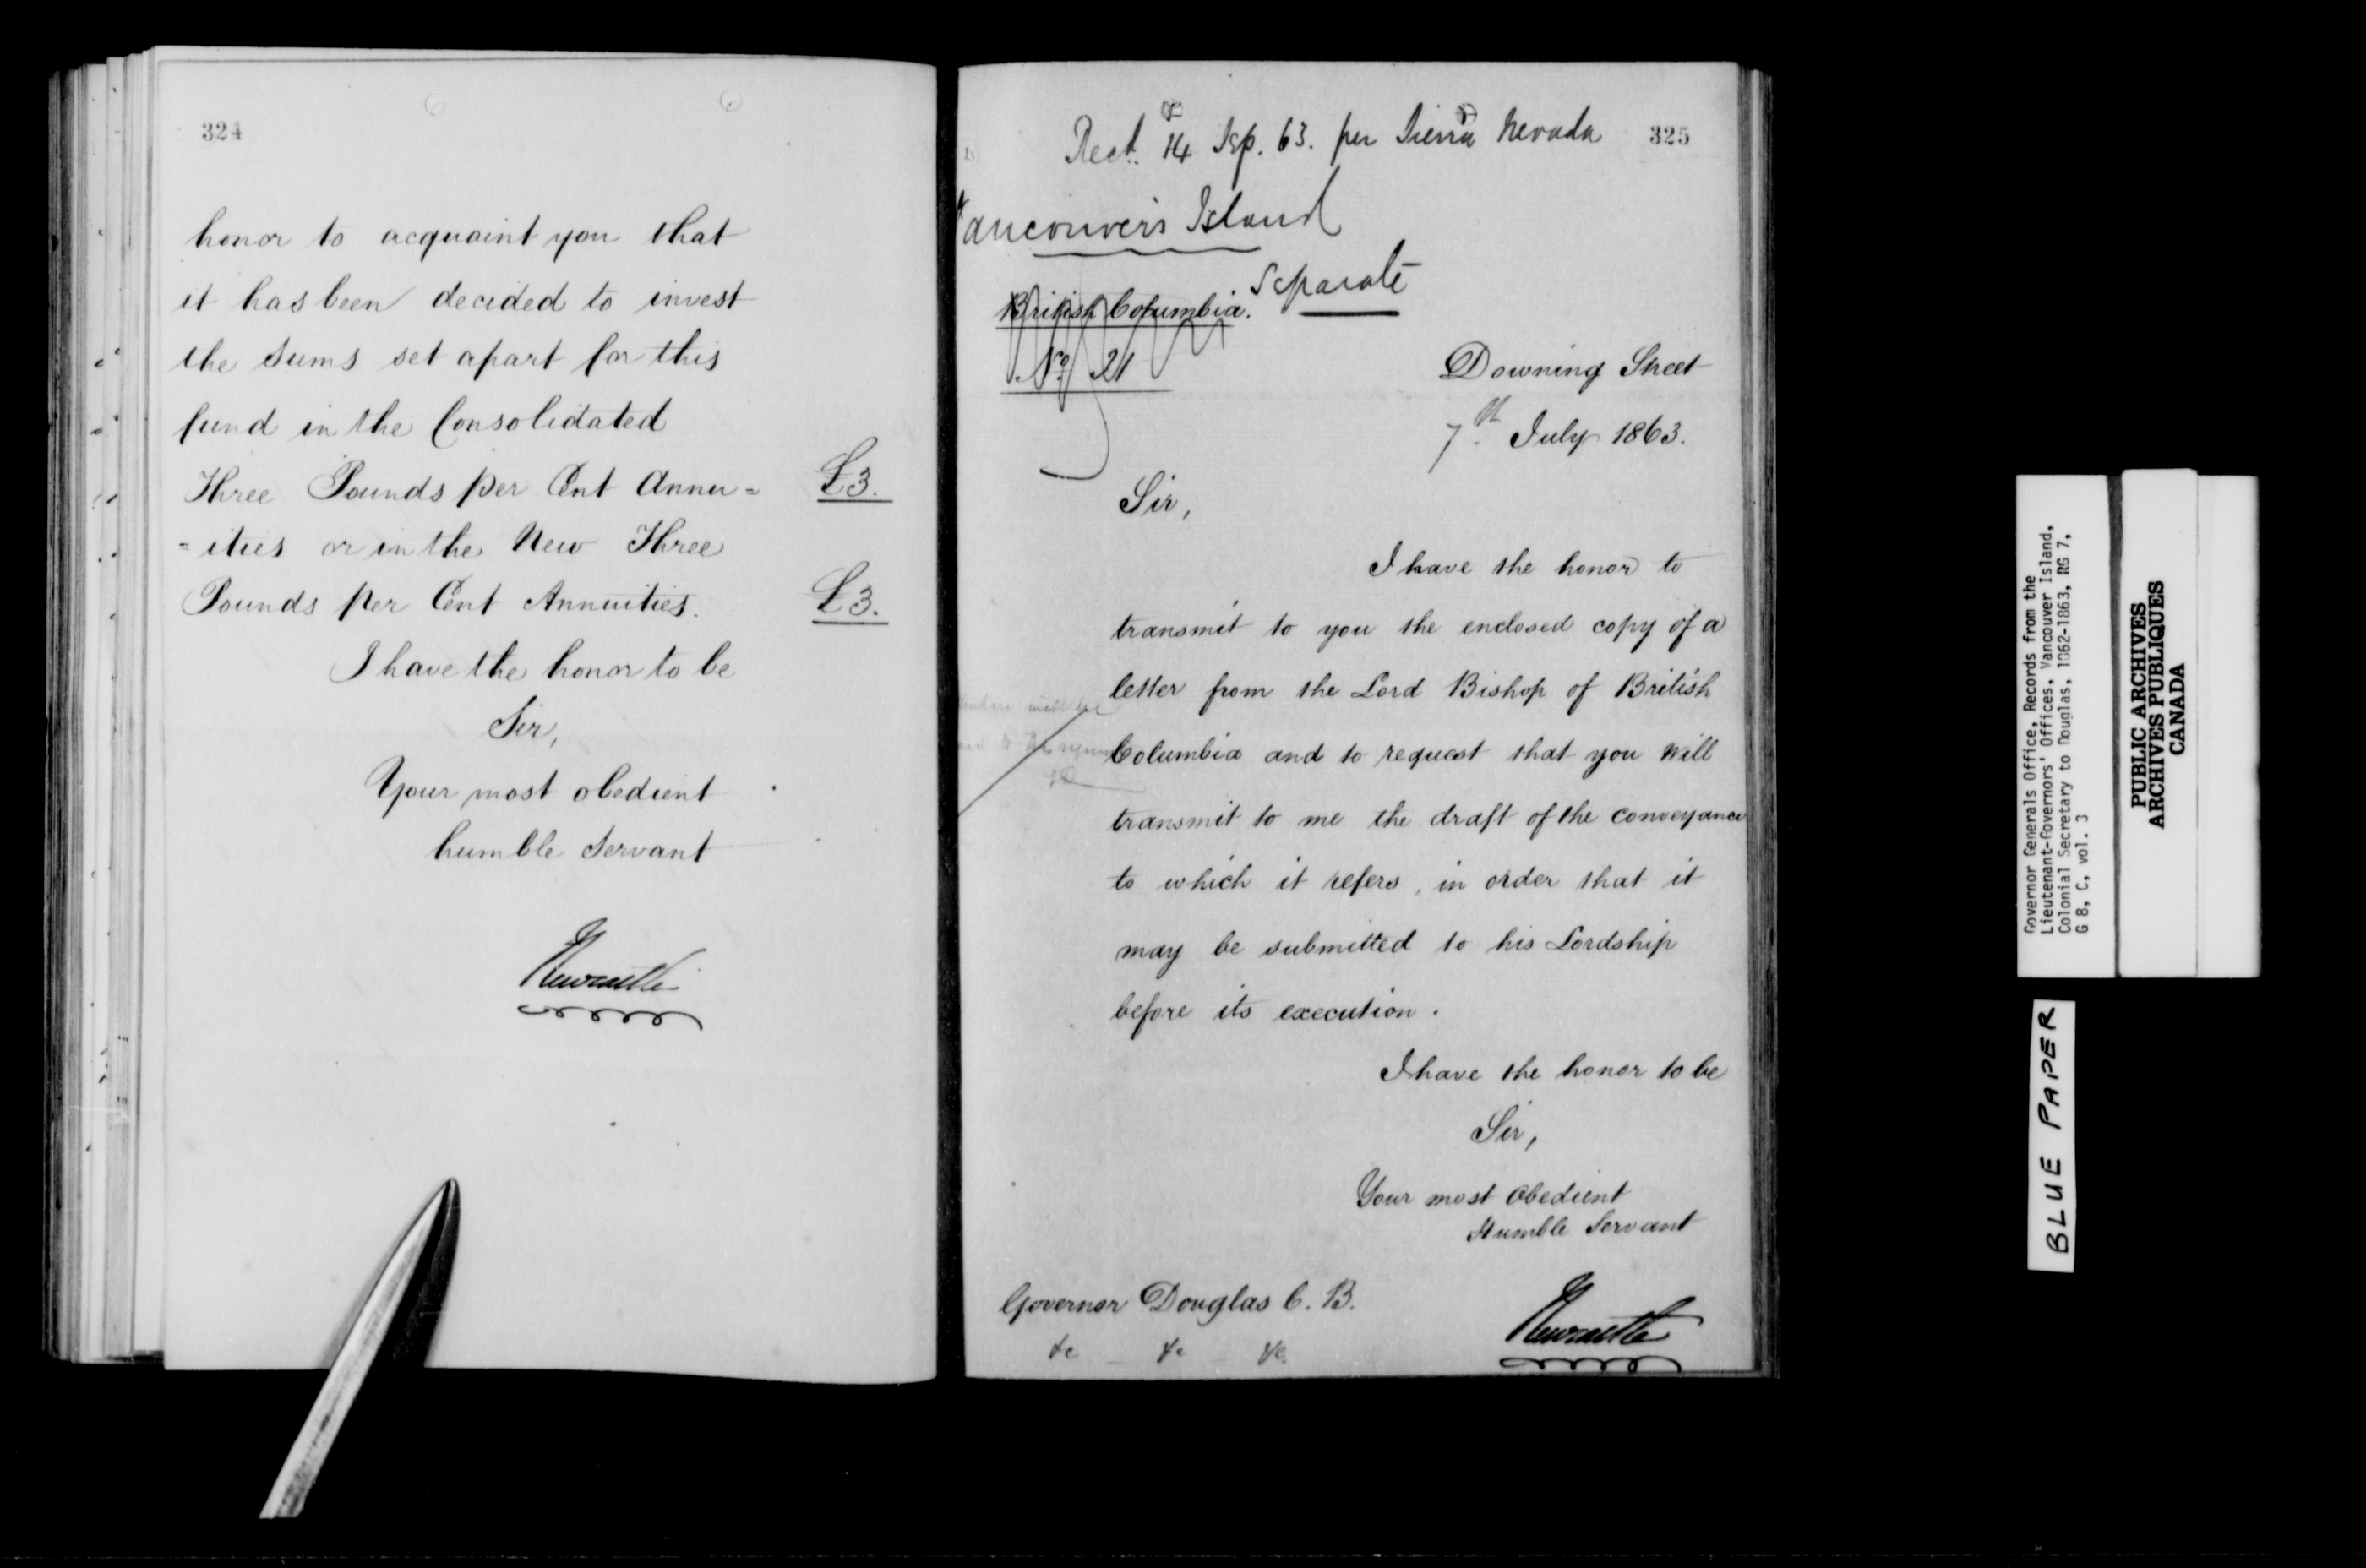 324
honor to acquaint you that
it has been decided to invest
the Sums set apart for this
fund in the Consolidated
Three Pounds per Cent Annu= £3.
=ities or in the New Three
Pounds per Cent Annuities. £3.
I have the honor to be
Sir,
Your most obedient
humble Servant
Newcastle
Recd. 14 Sep. 63. per Sierra Nevada 325
Vancouver's Island
Separate
British Columbia.
No. 21
Downing Street
7th. July 1863.
Sir,
I have the honor to
transmit to you the enclosed copy of a
letter from the Lord Bishop of British
Columbia and to request that you will
transmit to me the draft of the conveyance
to which it refers, in order that it
may be submitted to his Lordship
before its execution.
I have the honor to be
Sir,
Your most Obedient
Humble Servant
Newcastle
Governor Douglas C. B.
&c &c &c.
Governor Generals Office, Records from the
Lieutenant-Governors' Offices, Vancouver Island,
Colonial Secretary to Douglas, 1862-1863, RG 7,
G 8, C, vol. 3
PUBLIC ARCHIVES
ARCHIVES PUBLIQUES
CANADA
BLUE PAPER